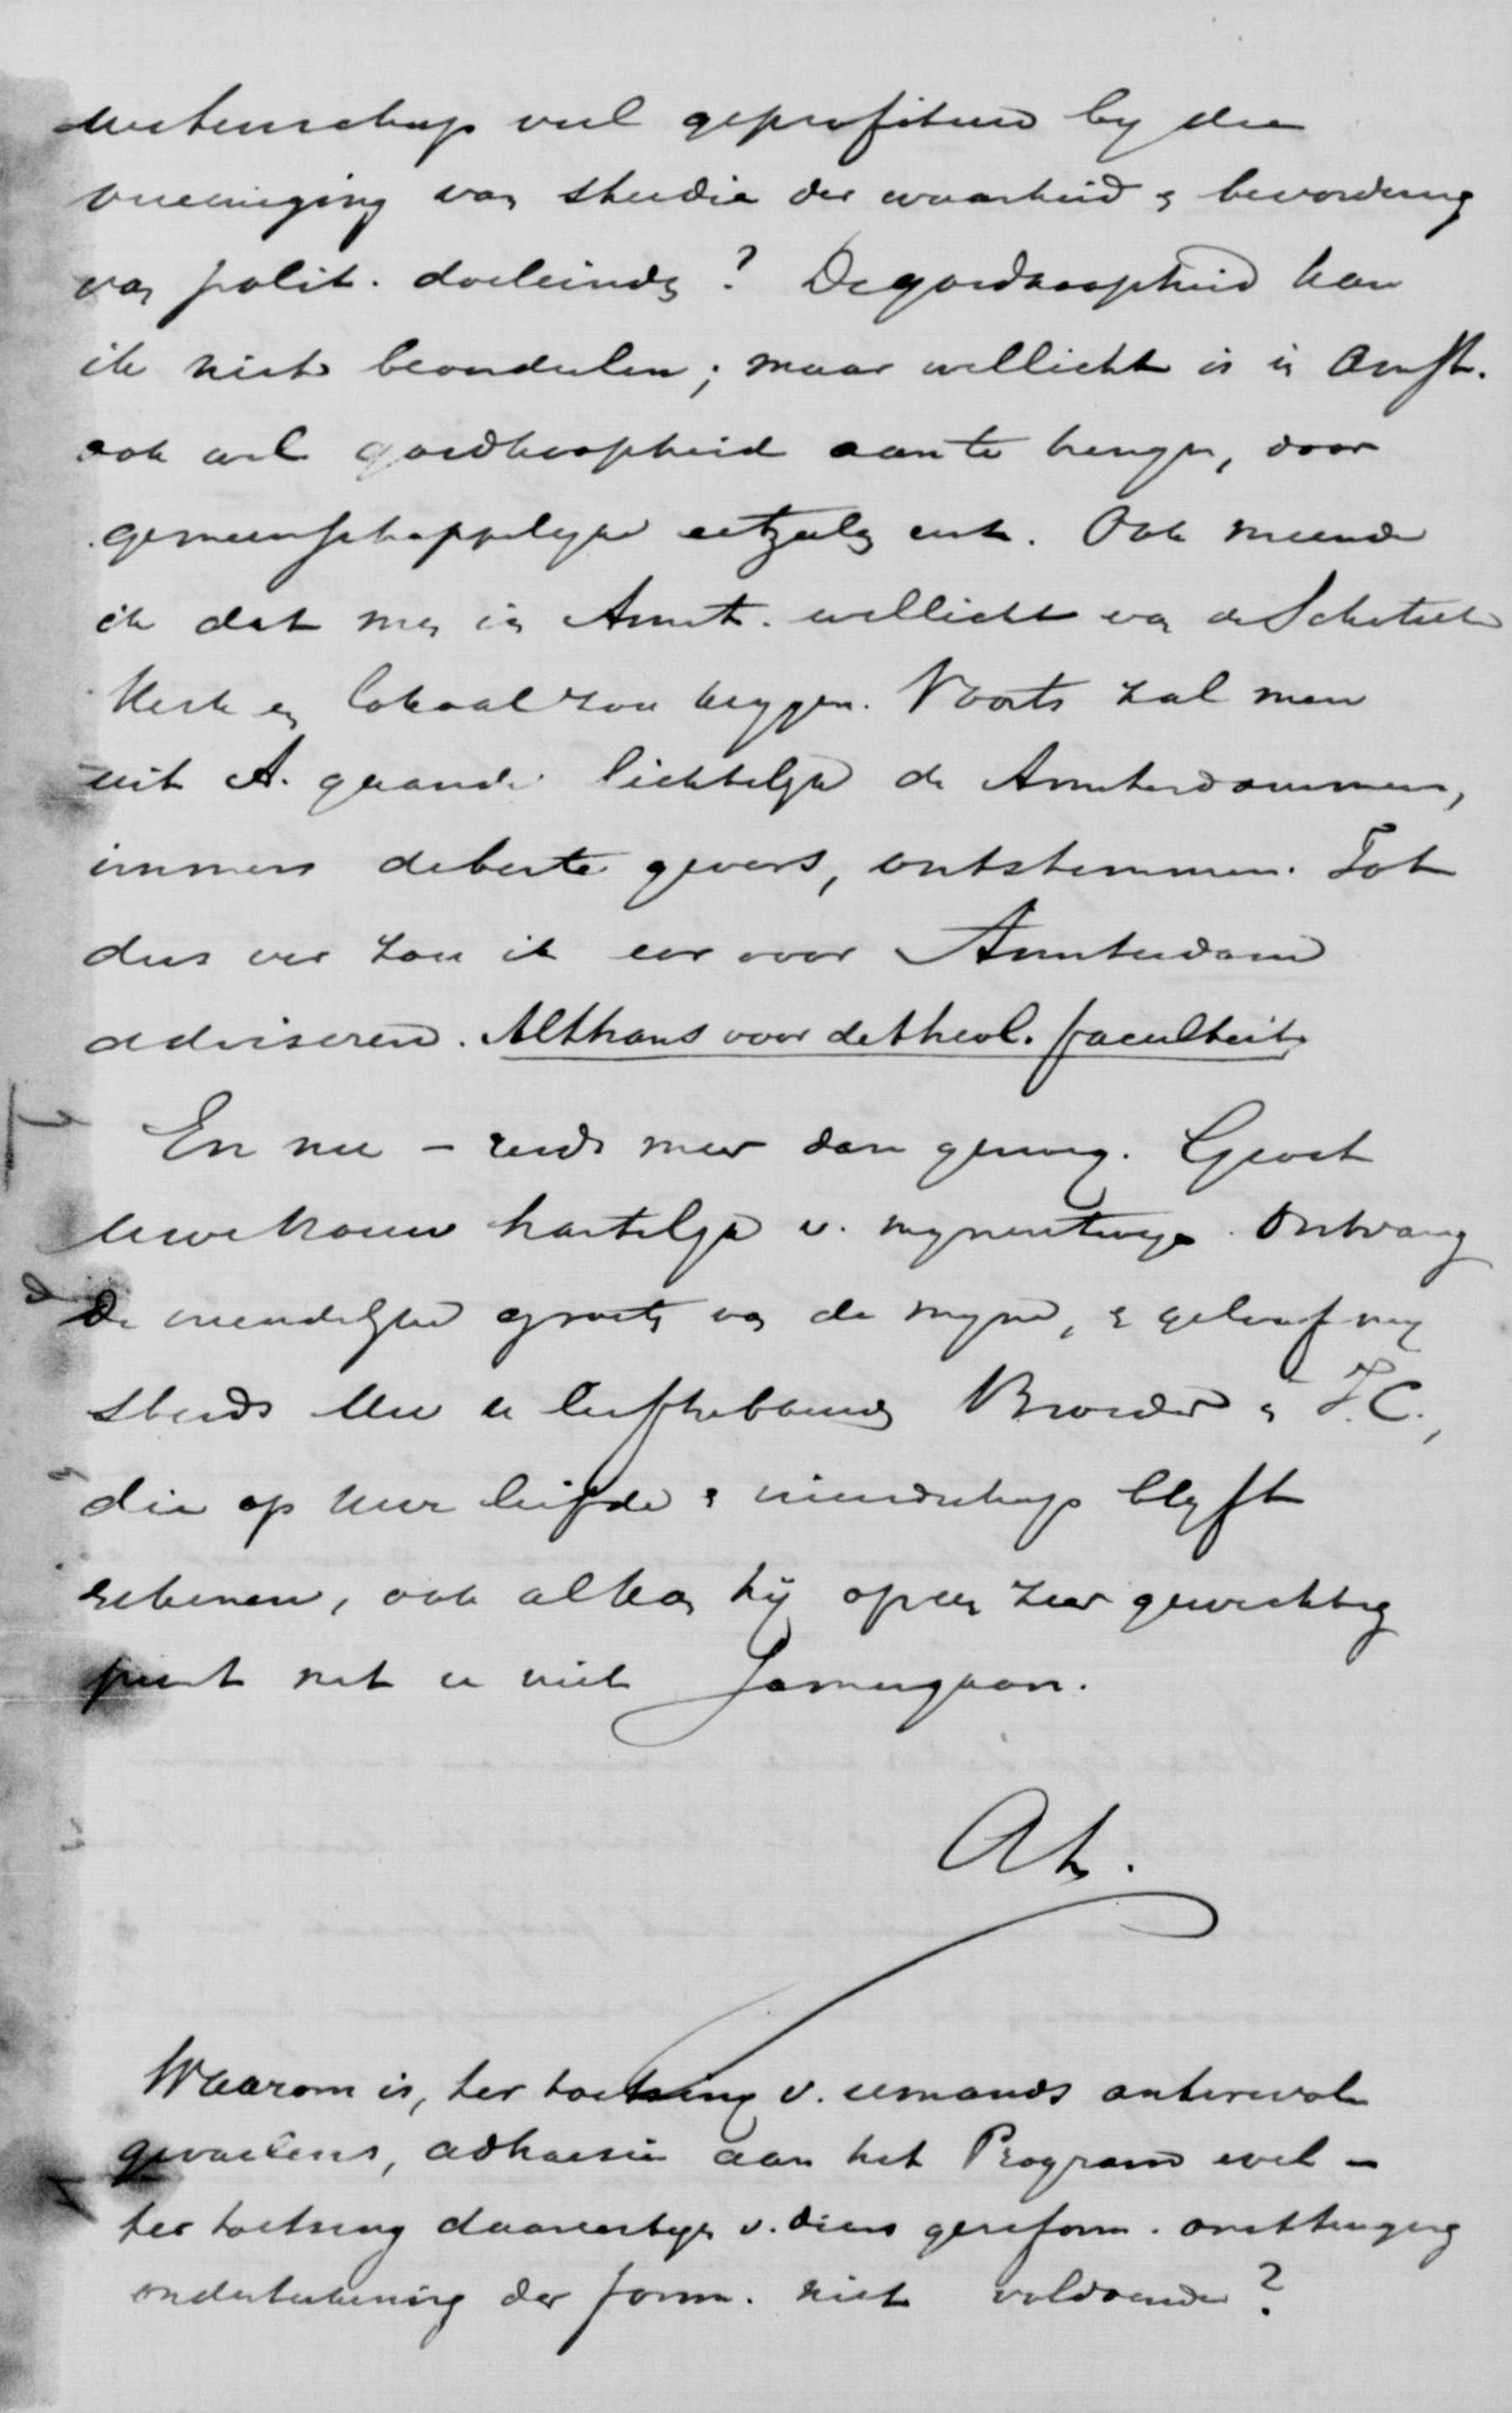 wetenschap veel geprofiteerd by die
vereeniging van studie der waarheid & bevordering
van polit. doeleinden? De goedkoopheid kan
ik niet beoordeelen; maar wellicht is in Amst.
ook wel goedkoopheid aan te brengen, door
gemeenschappelyke eetzalen enz. Ook meende
ik dat men in Amst. wellicht van de Schotsche
Kerk een lokaal zou krygen. Voorts zal men
uit A. gaande lichtelyk de Amsterdammers,
immers de beste gevers, ontstemmen. Tot
dus ver zou ik eer voor Amsterdam
adviseren. Althans voor de theol. faculteit.
En nu – reeds meer dan genoeg. Groet
uwe vrouw hartelyk v. mynentwege. Ontvang
de vriendelyke groeten van de myne, & geloof my
steeds Uw u liefhebbende Broeder in J.C.,
die op uwe liefde & vriendschap blyft
rekenen, ook al kan hij op een zeer gewichtig
punt met u niet samengaan.
Ah.
Waarom is, ter toetsing v. iemands antirevol.
gevoelens, adhaesie aan het Program wel –
ter toetsing daarentegen v. diens gereform. overtuiging
onderteekening der form. niet voldoende?